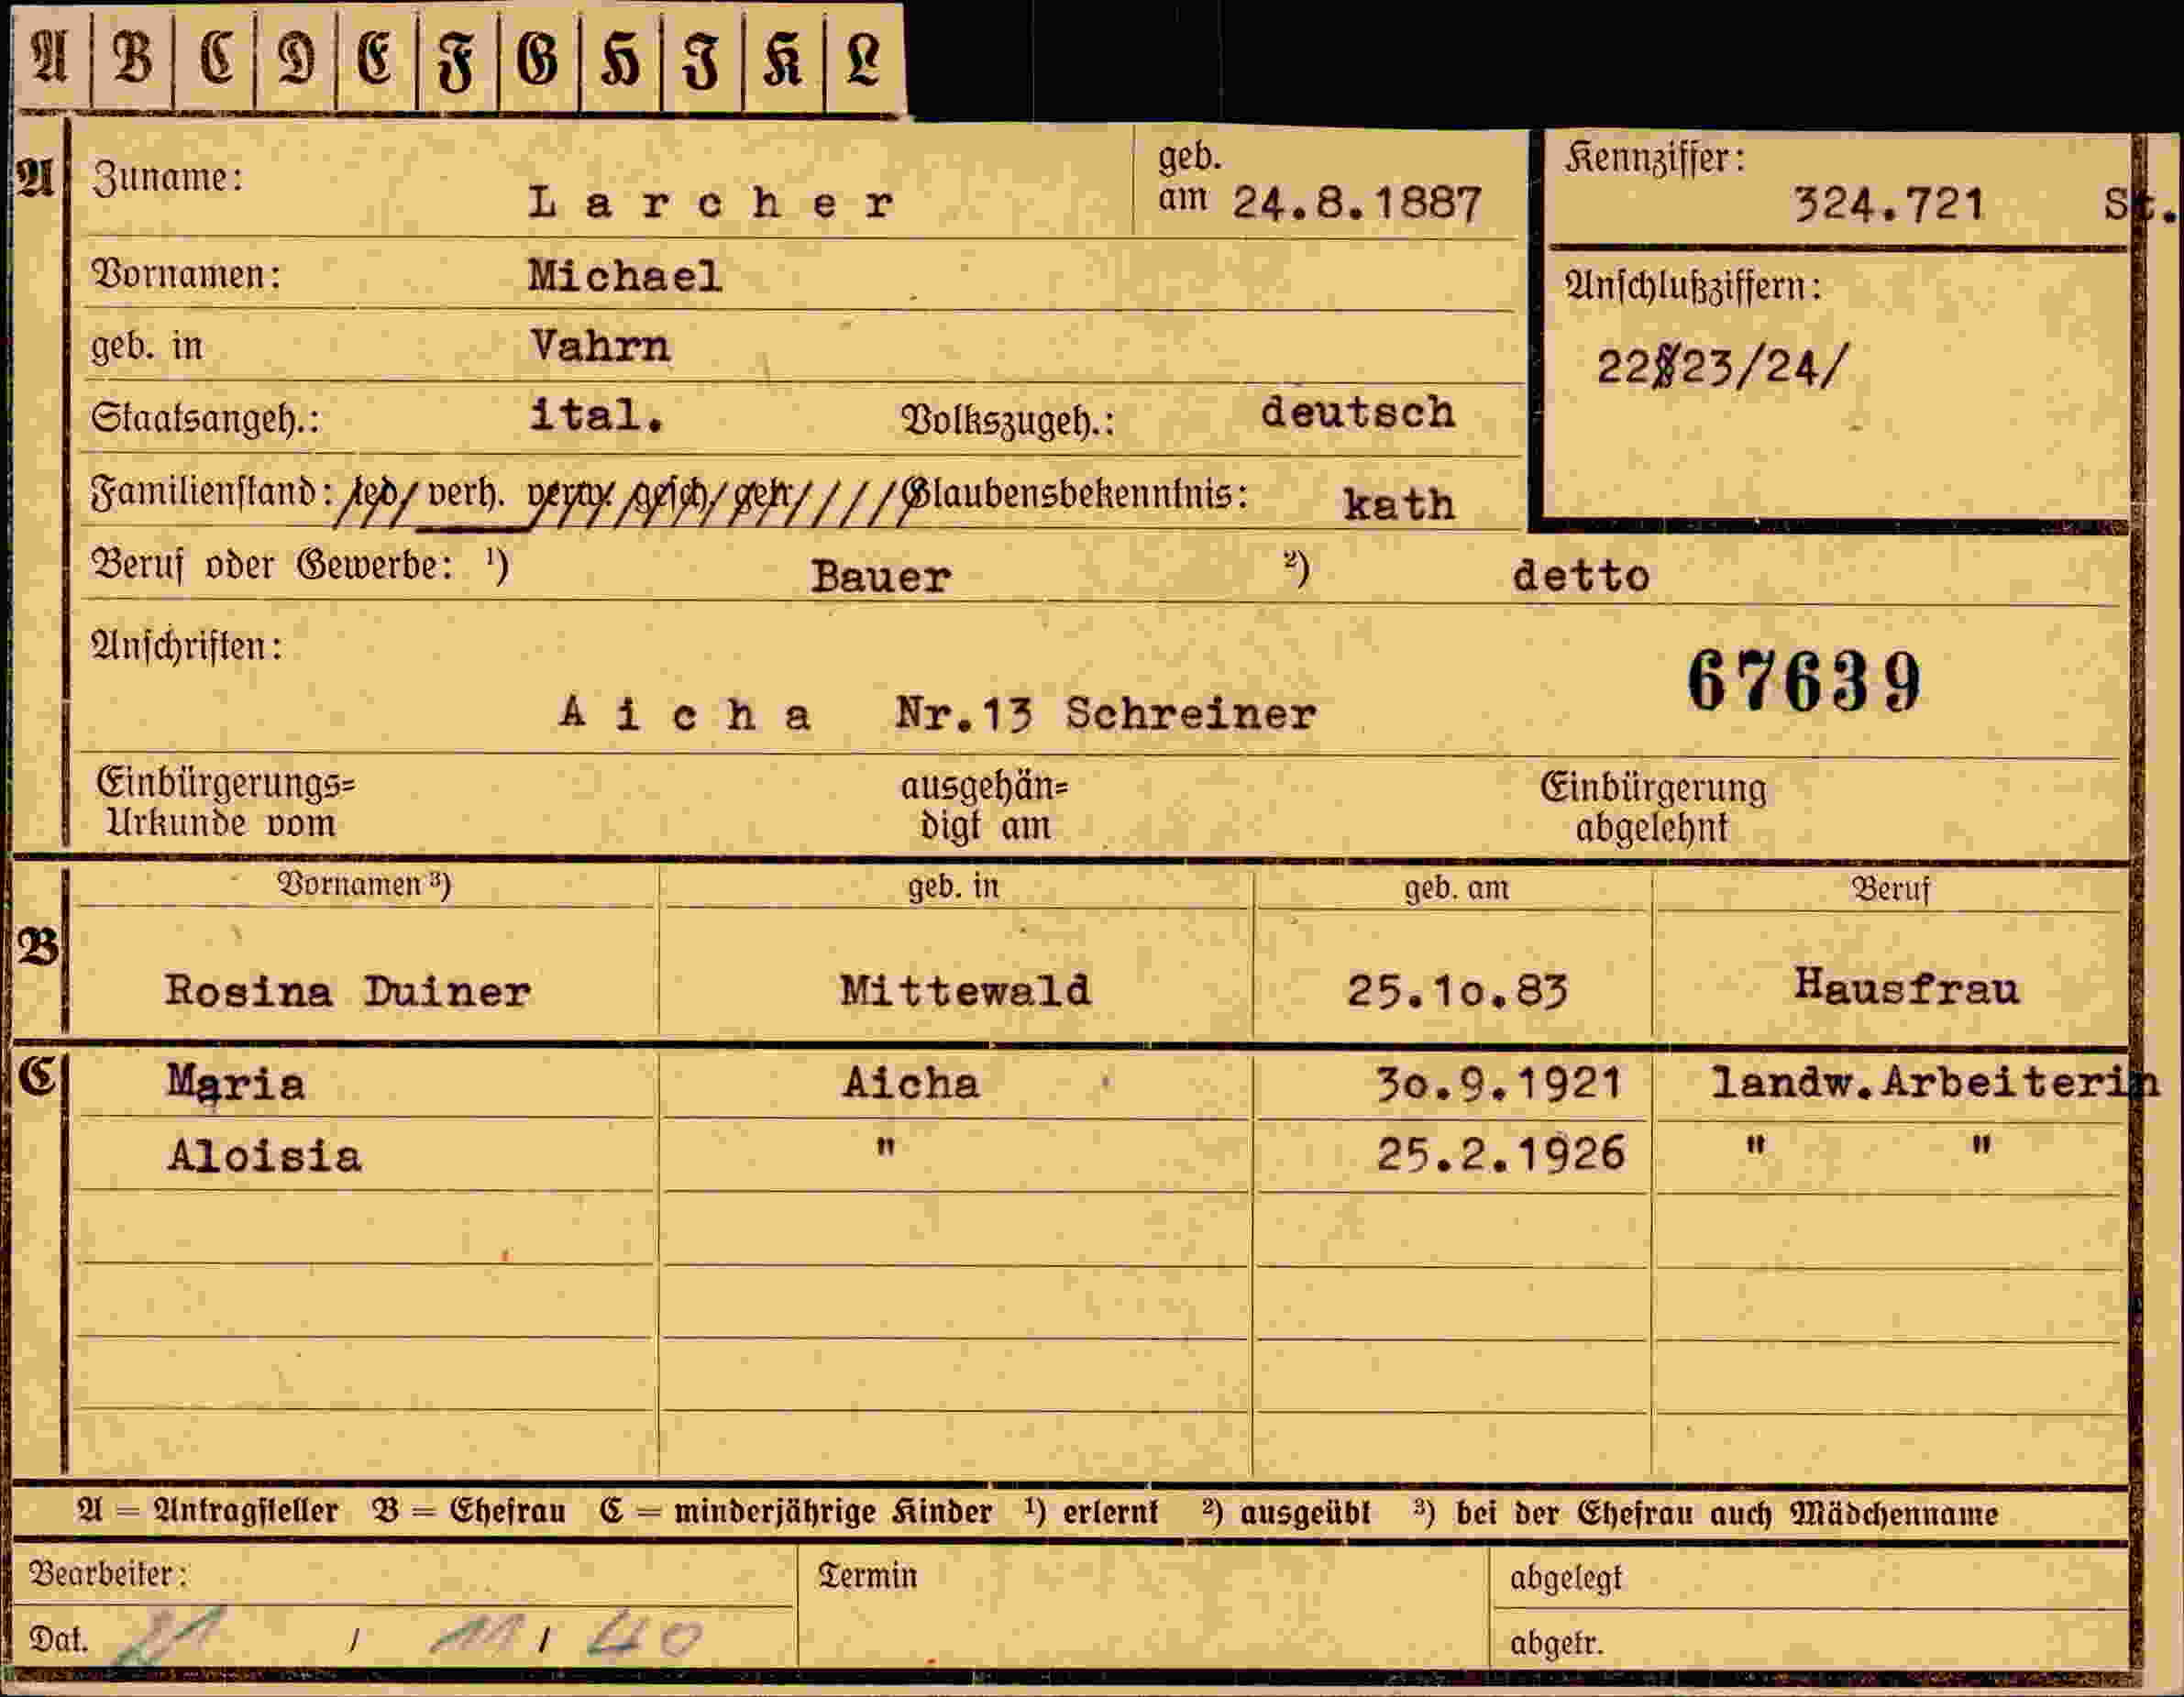 A B C D E F G H I K L
A Zuname: Larcher geb. am 24.8.1887 Kennziffer: 324.721 St.
Vornamen: Michael Anschlußziffern:
geb. in Vahrn 22/23/24/
Staatsangeh.: ital. Volkszugeh.: deutsch
Familienstand: led/ verh. verw. /gesch/ getr/ / / / Glaubensbekenntnis: kath
Beruf oder Gewerbe: ¹) Bauer ²) detto
Anschriften: 67639
Aicha Nr.13 Schreiner
Einbürgerungs= ausgehän= Einbürgerung
Urkunde vom digt am abgelehnt
Vornamen ³) geb. in geb. am Beruf
B Rosina Duiner Mittewald 25.10.83 Hausfrau
C Maria Aicha 30.9.1921 landw.Arbeiterin
Aloisia " 25.2.1926 " "
A = Antragsteller B = Ehefrau C = minderjährige Kinder ¹) erlernt ²) ausgeübt ³) bei der Ehefrau auch Mädchenname
Bearbeiter: Termin abgelegt
Dat. 21 / 11 / 40 abgetr.